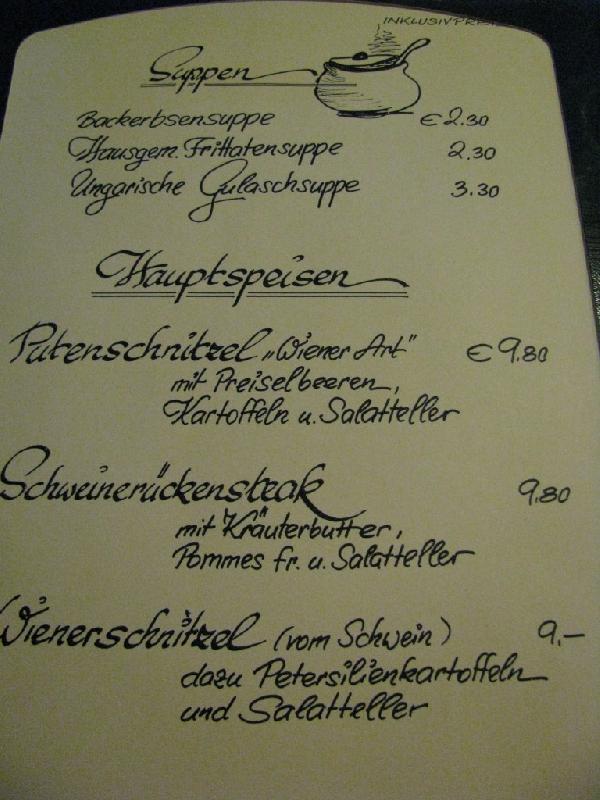 Suppen
Backerbsensuppe € 2.30
Hausgem. Frittatensuppe 2.30
Ungarische Gulaschsuppe 3.30
Hauptspeisen
Putenschnitzel „Wiener Art" € 9.80
mit Preiselbeeren,
Kartoffeln u. Salatteller
Schweinerückensteak 9.80
mit Kräuterbutter,
Pommes fr. u. Salatteller
Wienerschnitzel (vom Schwein) 9,-
dazu Petersilienkartoffeln
und Salatteller